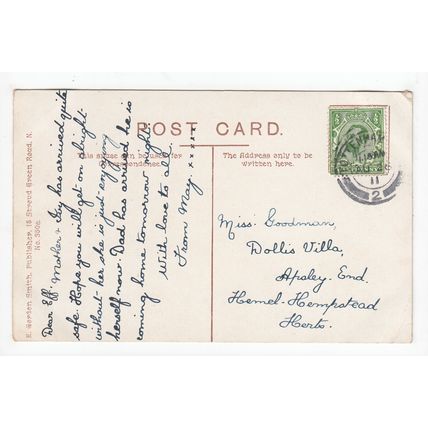 POST CARD.
This space can be used for
correspondence.
The Address only to be
written here.
E. Gordon Smith, Publisher, 15 Stroud Green Road, N.
Dear Eff. Mother & Guy has arrived quite
safe. Hope you will get on alright
without her she is just enjoying
herself now. Dad has arrived he is
coming home tomorrow night.
With love to all
From May. xxxxx
Miss. Goodman,
Dollis Villa,
Apsley. End.
Hemel-Hempstead
Herts.
11
2